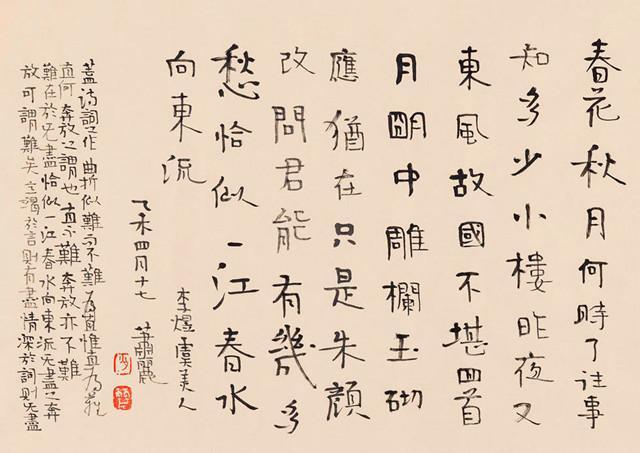 春花秋月何時了往事
知多少小樓昨夜又
東風故國不堪回首
月明中雕欄玉砌
應猶在只是朱顏
改問君能有幾多
愁恰似一江春水
向東流
李煜虞美人
乙未四月十七 蕭麗
蓋詩詞之作曲折似難而不難惟直為難
直何奔放之謂也直不難奔放亦不難
難在於无盡恰似一江春水向東流无盡之奔
放可謂難矣竭於言則有盡情深於詞則无盡